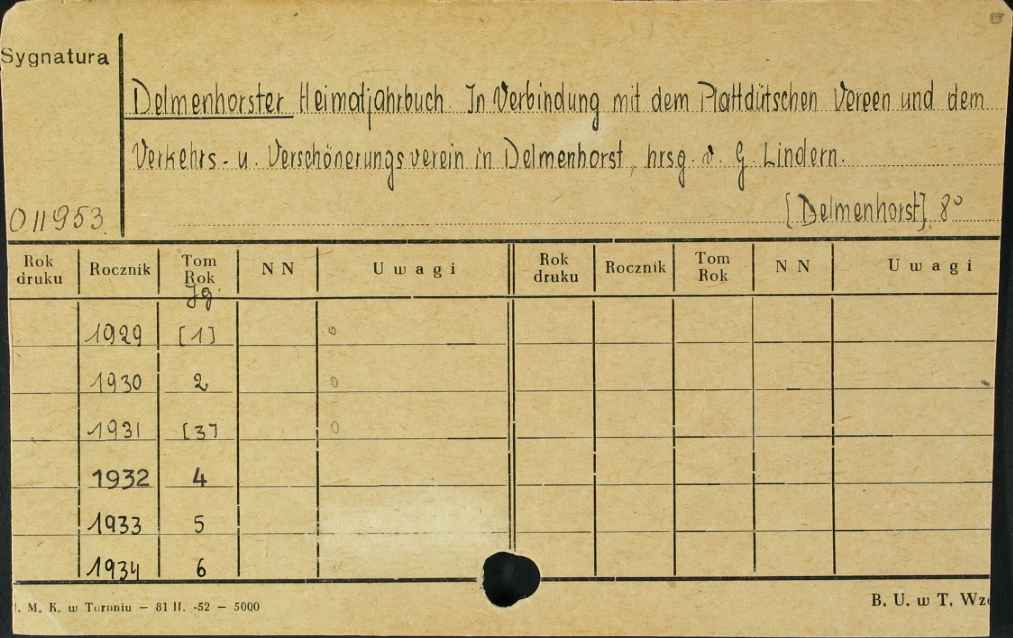 Sygnatura
Delmenhorster Heimatjahrbuch. In Verbindung mit dem Plattdütschen Vereen und dem
Verkehrs- u. Verschönerungsverein in Delmenhorst, hrsg. v. G. Lindern.
011953
[Delmenhorst]. 8°
Rok druku Rocznik Tom Rok N N Uwagi Rok druku Rocznik Tom Rok N N Uwagi
Jg.
1929 [1] o
1930 2 o
1931 [3] o
1932 4
1933 5
1934 6
. M. K. w Toruniu — 81 II. -52 — 5000
B. U. w T. Wz